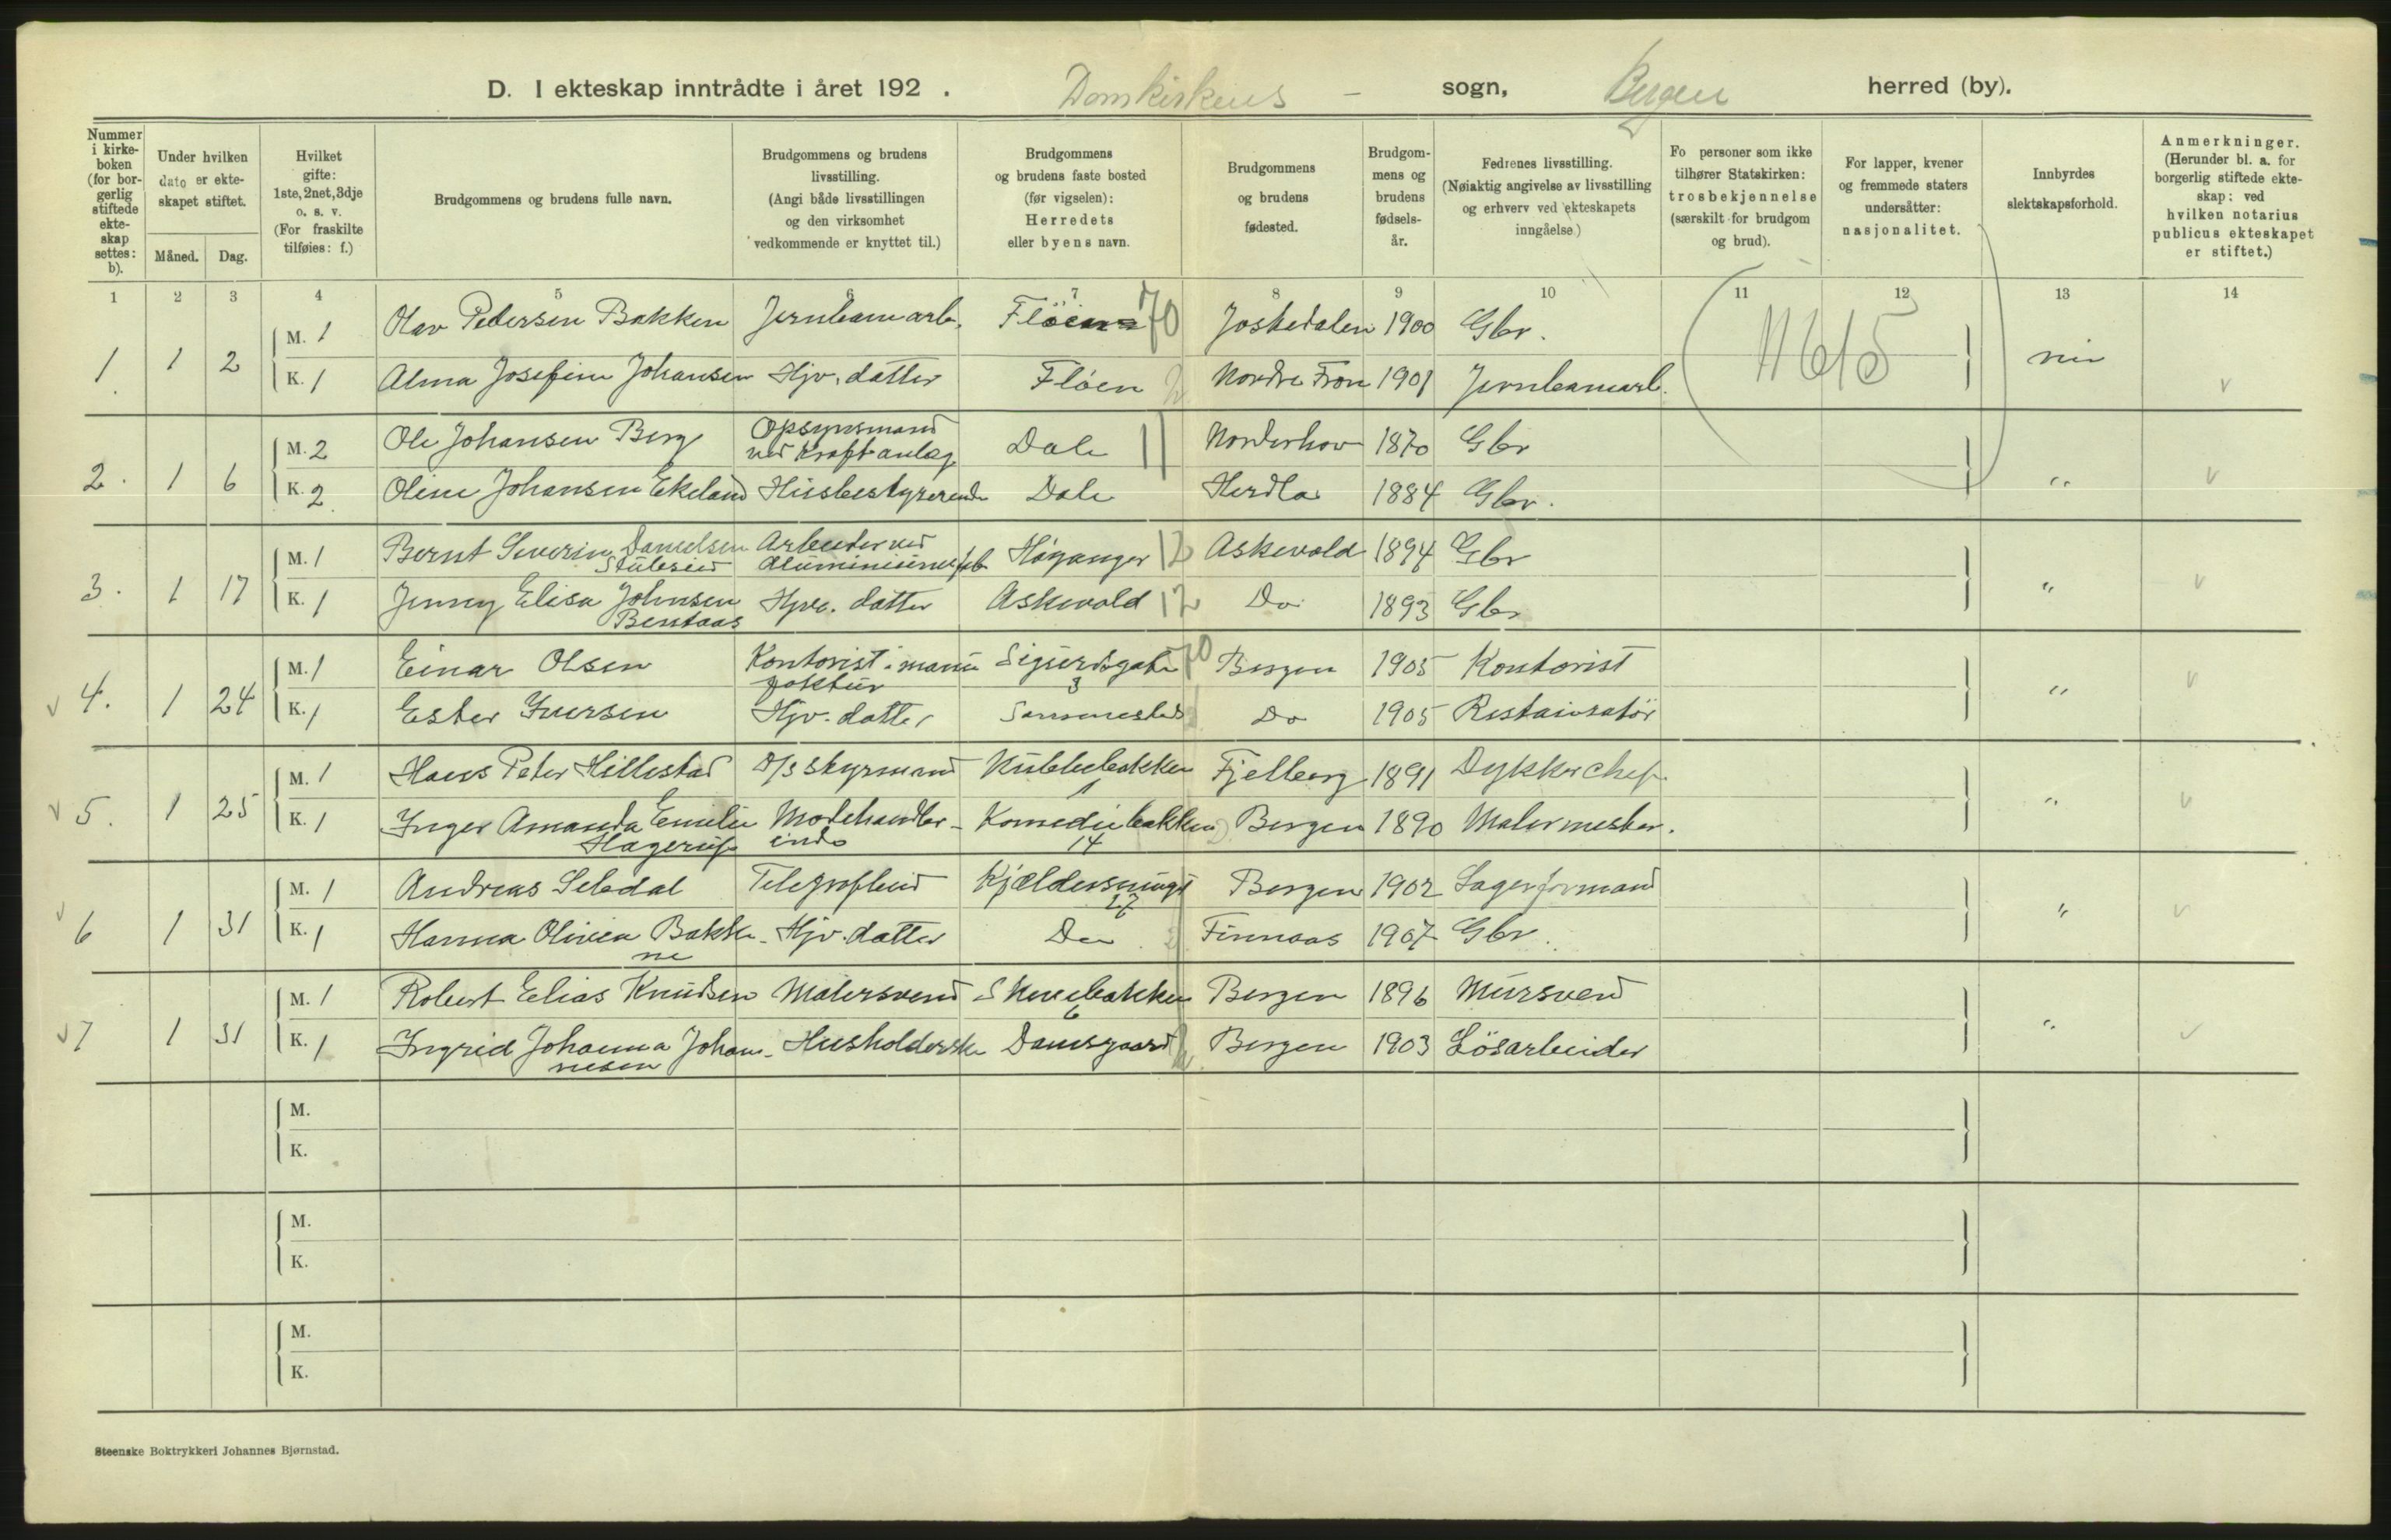 D. I ekteskap inntrådte i året 192 . Domkirkens - sogn, Bergen herred (by).
Nummer i kirke-boken (for bor-gerlig stiftede ekte-skap settes: b).
Under hvilken dato er ekte-skapet stiftet.
Måned. Dag.
Hvilket gifte: 1ste, 2net, 3dje o. s. v. (For fraskilte tilføies: f.)
Brudgommens og brudens fulle navn.
Brudgommens og brudens livsstilling. (Angi både livsstillingen og den virksomhet vedkommende er knyttet til.)
Brudgommens og brudens faste bosted (før vigselen): Herredets eller byens navn.
Brudgommens og brudens fødested.
Brudgom-mens og brudens fødsels-år.
Fedrenes livsstilling. (Nøiaktig angivelse av livsstilling og erhverv ved ekteskapets inngåelse)
Fo personer som ikke tilhører Statskirken: trosbekjennelse (særskilt for brudgom og brud).
For lapper, kvener og fremmede staters undersåtter: nasjonalitet.
Innbyrdes slektskapsforhold.
Anmerkninger. (Herunder bl. a. for borgerlig stiftede ekte-skap: ved hvilken notarius publicus ekteskapet er stiftet.)
1 2 3 4 5 6 7 8 9 10 11 12 13 14
1 1 2 M. 1 Olav Pedersen Bakken Jernbanearb. Fløen 70 Jostedalen 1900 Gbr.
K. 1 Alma Josefine Johansen Hjv. datter Fløen 2 Nordre Fron 1901 Jernbanearb. 11615 nei v
2. 1 6 M. 2 Ole Johansen Berg Opsynsmand ved Kraftanlæg Dale 11 Norderhov 1870 Gbr
K. 2 Oline Johansen Ekeland Husbestyrerinde Dale Herdla 1884 Gbr. " v
3. 1 17 M. 1 Bernt Severin Danielsen Arbeider ved Aluminiumsfab Høyanger 12 Askevold 1894 Gbr
K. 1 Jenny Elisa Johnsen Bentaas Hjv. datter Askevold 12 Do 1893 Gbr " v
v 4. 1 24 M. 1 Einar Olsen Kontorist i manufaktur Sigurdsgate 3 70 Bergen 1905 Kontorist
K. 1 Ester Iversen Hjv. datter Sammesteds Do 1905 Restauratør " v
v 5. 1 25 M. 1 Hans Peter Hillestad D/s Styrmand Kubbebakken 1 Fjelberg 1891 Dykkerchef
K. 1 Inger Amanda Emilie Hagerup Modehandler-inde Komediebakken 14 Bergen 1890 Malermester. " v
v 6 1 31 M. 1 Andreas Seledal Telegrafbud 27 Bergen 1902 Lagerformand
K. 1 Hanna Olivia Bakke-ne Hjv. datter Do Finnaas 1907 Gbr. " v
v 7 1 31 M. 1 Robert Elias Knudsen Malersvend Skivebakken 6 Bergen 1896 Mursvend
K. 1 Ingrid Johanna Johan-nesen Husholderske Damsgaard 2 Bergen 1903 Løsarbeider " v
M.
K.
M.
K.
M.
K.
Steenske Boktrykkeri Johannes Bjørnstad.